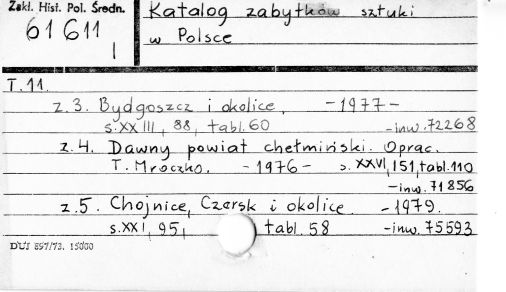 Zakł. Hist. Pol. Średn.
61611
I
Katalog zabytków sztuki
w Polsce
T. 11.
z. 3. Bydgoszcz i okolice. - 1977 -
s. XXIII, 88, tabl. 60 - inw. 72268
z. 4. Dawny powiat chełmiński. Oprac.
T. Mroczko. - 1976 - s. XXVI, 151, tabl. 110
- inw. 71856
z. 5. Chojnice, Czersk i okolice. - 1979.
s. XXI, 95, tabl. 58 - inw. 75593
DUJ 897/73. 15000